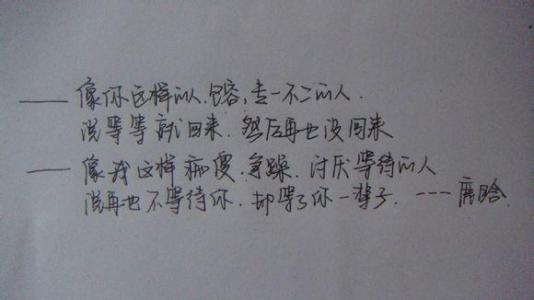 ——像你这样的人.包容,专一不二的人.
说等等就回来.然后再也没回来
——像我这样病傻.急躁.讨厌等待的人
说再也不等待你.却等了你一辈子.---鹿晗.